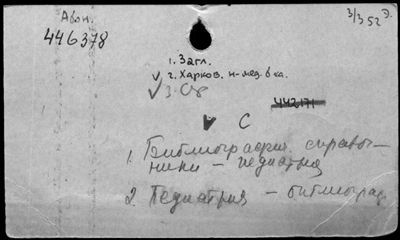 Абон.
3/3 52 Э.
446378
1. Загл.
2. Харков. н-мед. б-ка.
3. Сч
442171
С
1. Библиографич. справоч-
ники - педиатрия
2. Педиатрия - библиограф.